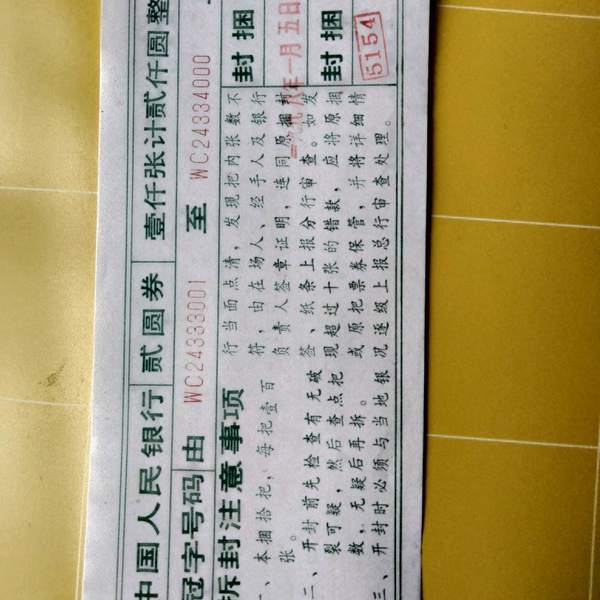 中国人民银行 贰圆券 壹仟张计贰仟圆整
冠字号码由 WC24333001 至 WC24334000
拆封注意事项
一、本捆拾把，每把壹百
张。
二、开封前先检查有无破
裂可疑，然后查点把
数，无疑后再拆。
三、开封时必须与当地银
行当面点清，发现把内张数不
符，由在场人、经手人及银行
负责人签章证明，连同原捆封
签、纸条上报分行审查。如发
现超过十张的错款，应将原捆
或原把票券保管，并将详细情
况逐级上报总行审查处理。
封捆
八年一月五日
封捆
5154